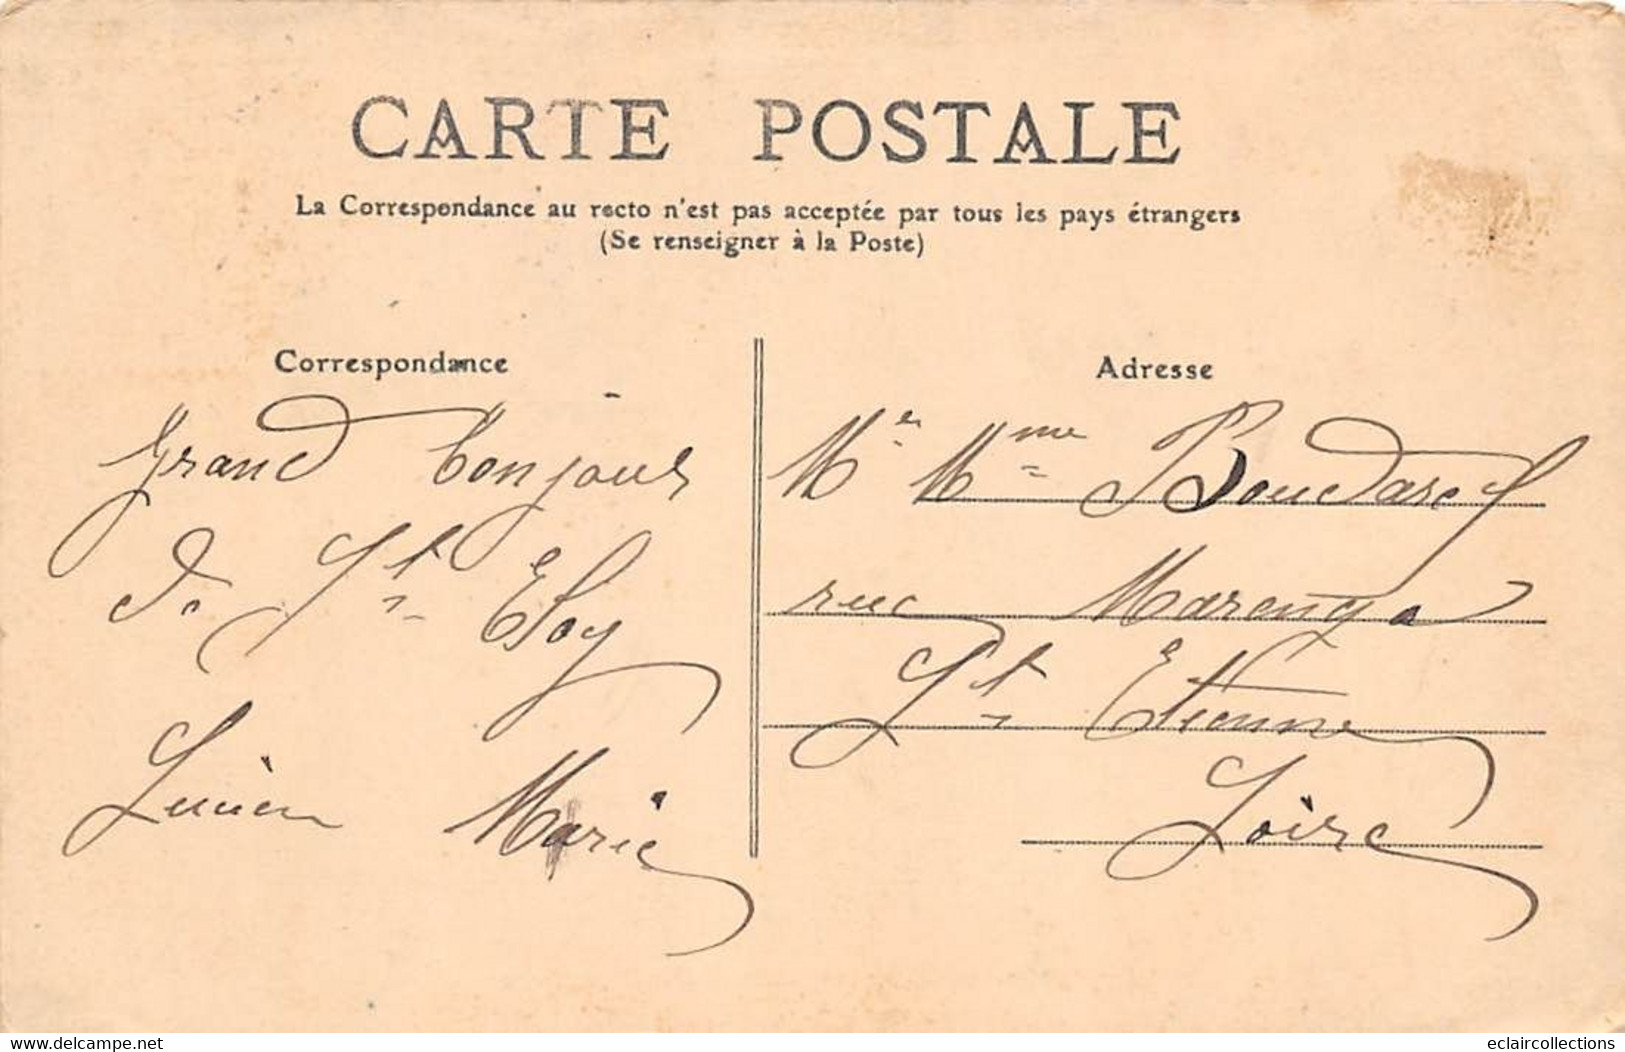 CARTE POSTALE
La Correspondance au recto n'est pas acceptée par tous les pays étrangers
(Se renseigner à la Poste)
Correspondance
Grand bonjour
de St Eloy
Lucien Marie
Adresse
Mr Mme
rue Marengo
St Etienne
Loire
www.delcampe.net
eclaircollections